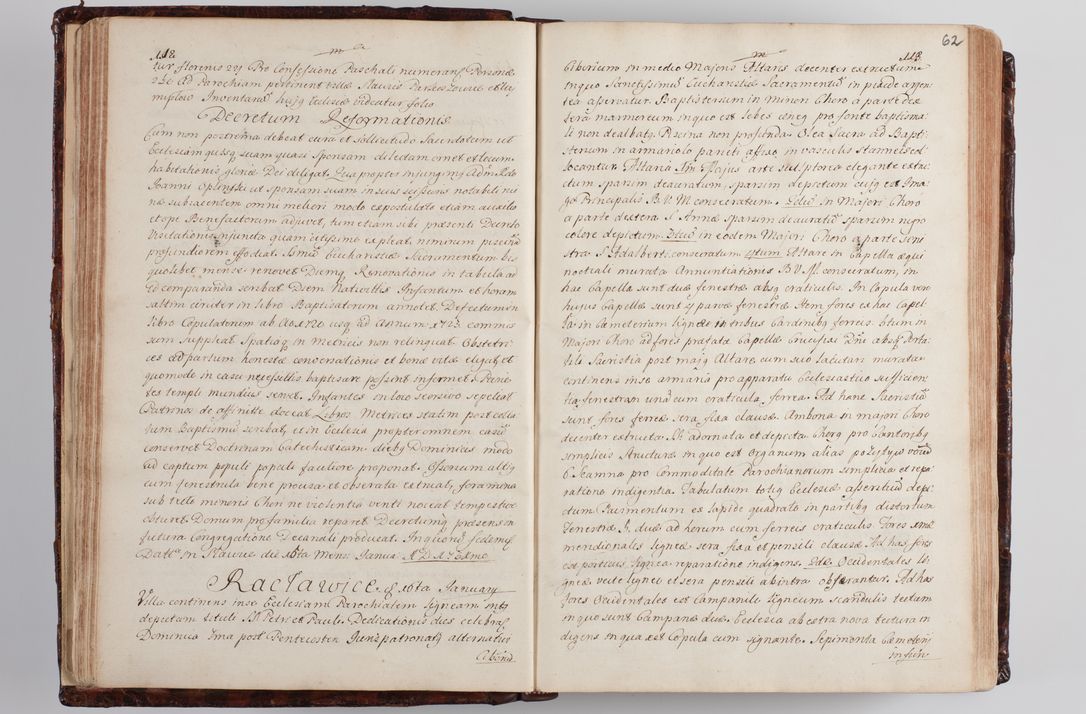 112
tur florenis 221 Pro Confessione Paschali numeran: Personæ
ad Parochiam pertinent villæ
Inventariū hujq Ecclesiæ videatur folio
Decretum Reformationis
Cum non postrema debeat cura et sollicitudo Sacerdotum ut
Ecclesiam quisq suam quasi Sponsam dilectam ornet et locum
habitationis gloriæ Dei diligat, Quapropter injungimq Admodum Rdo
Joanni ut sponsam suam in suis notabili rui
næ subiacentem omni meliori modo expostulato etiam auxilio
et ope Benefactorum adjuvet, tum etiam sibi præsenti Decreto
Visitationis injuncta quam citissime expleat, nimirum piscinā
profundiorem effodiat Ssmū Eucharistiæ Sacramentum bis
quolibet mense renovet Diemq Renovationis in tabula ad
id comparanda scribat Diem Nativitis Infantum et horam
saltim circiter in libro Baptisatorum annotet, Defectum in
libro Copulatorum ab Ao 1720 usq ad Annum 1723 commis
sum suppleat Spatiaq in Metricis non relinquat Obstetri
ces ad partum honestæ conversationis et bonæ vitæ eligat, et
quomodo in casu necessitis baptisare possent informet, Parie
tes templi mundius servet. Infantes in loco seorsivo sepeliat
Patrinos de affinitte doceat, Libros Metrices statim post colla
tum Baptismū scribat, et in Ecclesia propter omnem casū
conservet Doctrinam Catechisticam diebq Dominicis modo
ad captum populi populi faciliore proponat. Ossorium altiq
cum fenestrula bene provisa et observata extruat, foramina
sub tecto minoris Chori ne violentia venti noceat tempestive
obturet. Domum pro familia reparet Decretumq præsens in
futura Congregatione Decanali producat. In quorū fidem
Datū in die 16ta Mens: Januar A D 1728mo
Racławice d 16ta January
Villa continens in se Ecclesiam Parochialem ligneam intq
depictam tituli SS Petri et Pauli. Dedicationis dies celebrat
Dominica Ima post Pentecosten Jurispatronatq alternativi
Cibori
62
113
Ciborium in medio Majoris Altaris decenter extructum
in quo Sanctissimū Eucharistiæ Sacramentū in pixide argen
tea asservatur Baptisterium in Minori Choro a parte dex
tera marmoreum in quo est lebes æneq pro fonte baptisma
li non dealbatq Piscina non profunda. Olea Sacra ad Bapti
sterium in armariolo parieti affixo in vasculis stanneis col
locantur. Altaria Im Majus arte sculptorea elegante extru
ctum sparsim deauratum, sparsim depictum cujq est Ima
go Principalis B V. M. consecratum. 2dum in Majori Choro
a parte dextera S. Annæ sparsim deauratū sparsim nigro
colore depictum. 3tiū in eodem Majori Choro a parte sini
stra S. Adalberti consecratum 4tum Altare in Capella æqui
noctiali murata Annuntiationis B. V. M. consecratum, in
hac Capella sunt duæ fenestræ absq craticulis. In Cupula vero
hujus Capellæ sunt 4 parvæ fenestræ. Item fores ex hac Capel
la in Cæmeterium ligneæ in tribus Cardinibq ferreis. 5tum in
Majori Choro ad fores præfatæ Capellæ Crucifixi Dni absq Porta
tili Sacristia post majq Altare cum suo laterculari murata
continens in se armaria pro apparatu Ecclesiastico sufficien
tia, fenestram unā cum craticula ferrea. Ad hanc Sacristiā
sunt fores ferreæ sera fixa clausæ. Ambona in majori Choro
decenter extructa et adornata et depicta. Chorq pro Cantoribq
simplicis structuræ in quo est Organum alias pozytyw
Scamna pro Commoditate Parochianorum simplicia et repa
ratione indigentia. Tabulatum totiq Ecclesiæ asseritiū depi
ctum Pavimentum ex lapide quadrato in partibq distortum
Fenestræ duæ ad Chorum cum ferreis craticulis Fores unæ
meridionales ligneæ sera fixa et pensili clausæ Ad has fores
est porticus lignea reparatione indigens. 2dæ Occidentales li
gneæ vecte ligneo et sera pensili ab intra obserantur. Ad has
fores Occidentales est Campanile ligneum scandulis tectum
in quo sunt Campanæ duæ. Ecclesia ab extra nova tectura in
digens in qua est Cupula cum signante. Sepimenta Cæmeterii